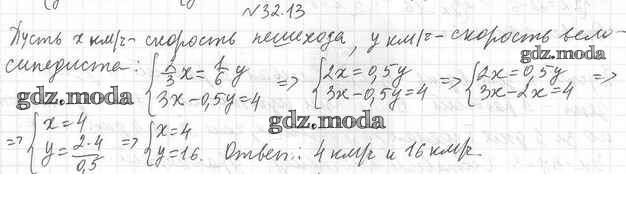 №32.13
Пусть x км/ч - скорость пешехода, y км/ч - скорость вело-
сипедиста: { 2/3 x = 1/6 y => { 2x = 0,5y => { 2x = 0,5y =>
3x - 0,5y = 4 3x - 0,5y = 4 3x - 2x = 4
=> { x = 4 => { x = 4
y = 2·4/0,5 y = 16. Ответ: 4 км/ч и 16 км/ч.
gdz.moda
gdz.moda
gdz.moda